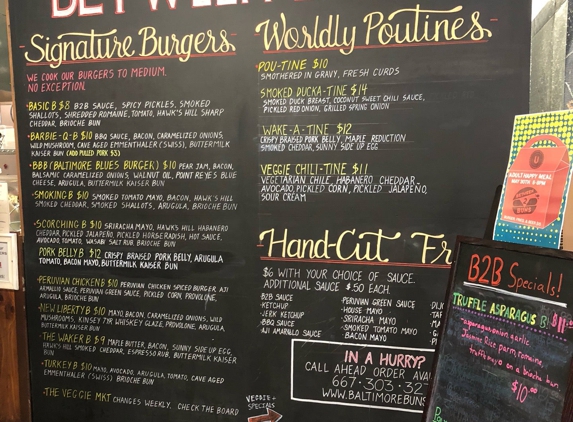 BETWEEN
Signature Burgers
WE COOK OUR BURGERS TO MEDIUM.
NO EXCEPTION.
·BASIC B $8 B2B SAUCE, SPICY PICKLES, SMOKED
SHALLOTS, SHREDDED ROMAINE, TOMATO, HAWK'S HILL SHARP
CHEDDAR, BRIOCHE BUN
·BARBIE-Q-B $10 BBQ SAUCE, BACON, CARAMELIZED ONIONS,
WILD MUSHROOM, CAVE AGED EMMENTHALER (SWISS), BUTTERMILK
KAISER BUN (ADD PULLED PORK $3)
·BBB (BALTIMORE BLUES BURGER) $10 PEAR JAM, BACON,
BALSAMIC CARAMELIZED ONIONS, WALNUT OIL, POINT REYES BLUE
CHEESE, ARUGULA, BUTTERMILK KAISER BUN
·SMOKING B $10 SMOKED TOMATO MAYO, BACON, HAWK'S HILL
SMOKED CHEDDAR, SMOKED SHALLOTS, ARUGULA, BRIOCHE BUN
·SCORCHING B $10 SRIRACHA MAYO, HAWK'S HILL HABANERO
CHEDDAR, PICKLED JALAPENO, PICKLED HORSERADISH, HOT SAUCE,
AVOCADO, TOMATO, WASABI SALT RUB, BRIOCHE BUN
PORK BELLY B $12 CRISPY BRAISED PORK BELLY, ARUGULA
TOMATO, BACON MAYO, BUTTERMILK KAISER BUN
·PERUVIAN CHICKEN B $10 PERUVIAN CHICKEN SPICED BURGER, AJI
AMARILLO SAUCE, PERUVIAN GREEN SAUCE, PICKLED CORN, PROVOLONE,
ARUGULA, BRIOCHE BUN
·NEW LIBERTY B $10 MAYO, BACON, CARAMELIZED ONIONS, WILD
MUSHROOMS, KINSEY 7YR WHISKEY GLAZE, PROVOLONE, ARUGULA,
BUTTERMILK KAISER BUN
·THE WAKER B $9 MAPLE BUTTER, BACON, SUNNY SIDE UP EGG,
HAWK'S HILL SMOKED CHEDDAR, ESPRESSO RUB, BUTTERMILK KAISER
BUN
·TURKEY B $10 MAYO, AVOCADO, ARUGULA, TOMATO, CAVE AGED
EMMENTHALER (SWISS) BRIOCHE BUN
·THE VEGGIE MKT CHANGES WEEKLY. CHECK THE BOARD
VEGGIE +
SPECIALS
Worldly Poutines
POU-TINE $10
SMOTHERED IN GRAVY, FRESH CURDS
SMOKED DUCKA-TINE $14
SMOKED DUCK BREAST, COCONUT SWEET CHILI SAUCE,
PICKLED RED ONION, GRILLED SPRING ONION
WAKE-A-TINE $12
CRISPY BRAISED PORK BELLY, MAPLE REDUCTION
SMOKED CHEDDAR, SUNNY SIDE UP EGG
VEGGIE CHILI-TINE $11
VEGETARIAN CHILE, HABANERO CHEDDAR,
AVOCADO, PICKLED CORN, PICKLED JALAPENO,
SOUR CREAM
Hand-Cut Fr
$6 WITH YOUR CHOICE OF SAUCE.
ADDITIONAL SAUCE $.50 EACH.
B2B SAUCE
·KETCHUP
·JERK KETCHUP
·BBQ SAUCE
·AJI AMARILLO SAUCE
·PERUVIAN GREEN SAUCE
·HOUSE MAYO
·SRIRACHA MAYO
·SMOKED TOMATO MAYO
·BACON MAYO
IN A HURRY?
CALL AHEAD ORDER AVAI
667·303·32
WWW.BALTIMOREBUNS
ADULT HAPPY MEAL
B2B Specials!
TRUFFLE ASPARAGUS B
asparagus on garlic
truffle mayo on a brioche bun
$10.00